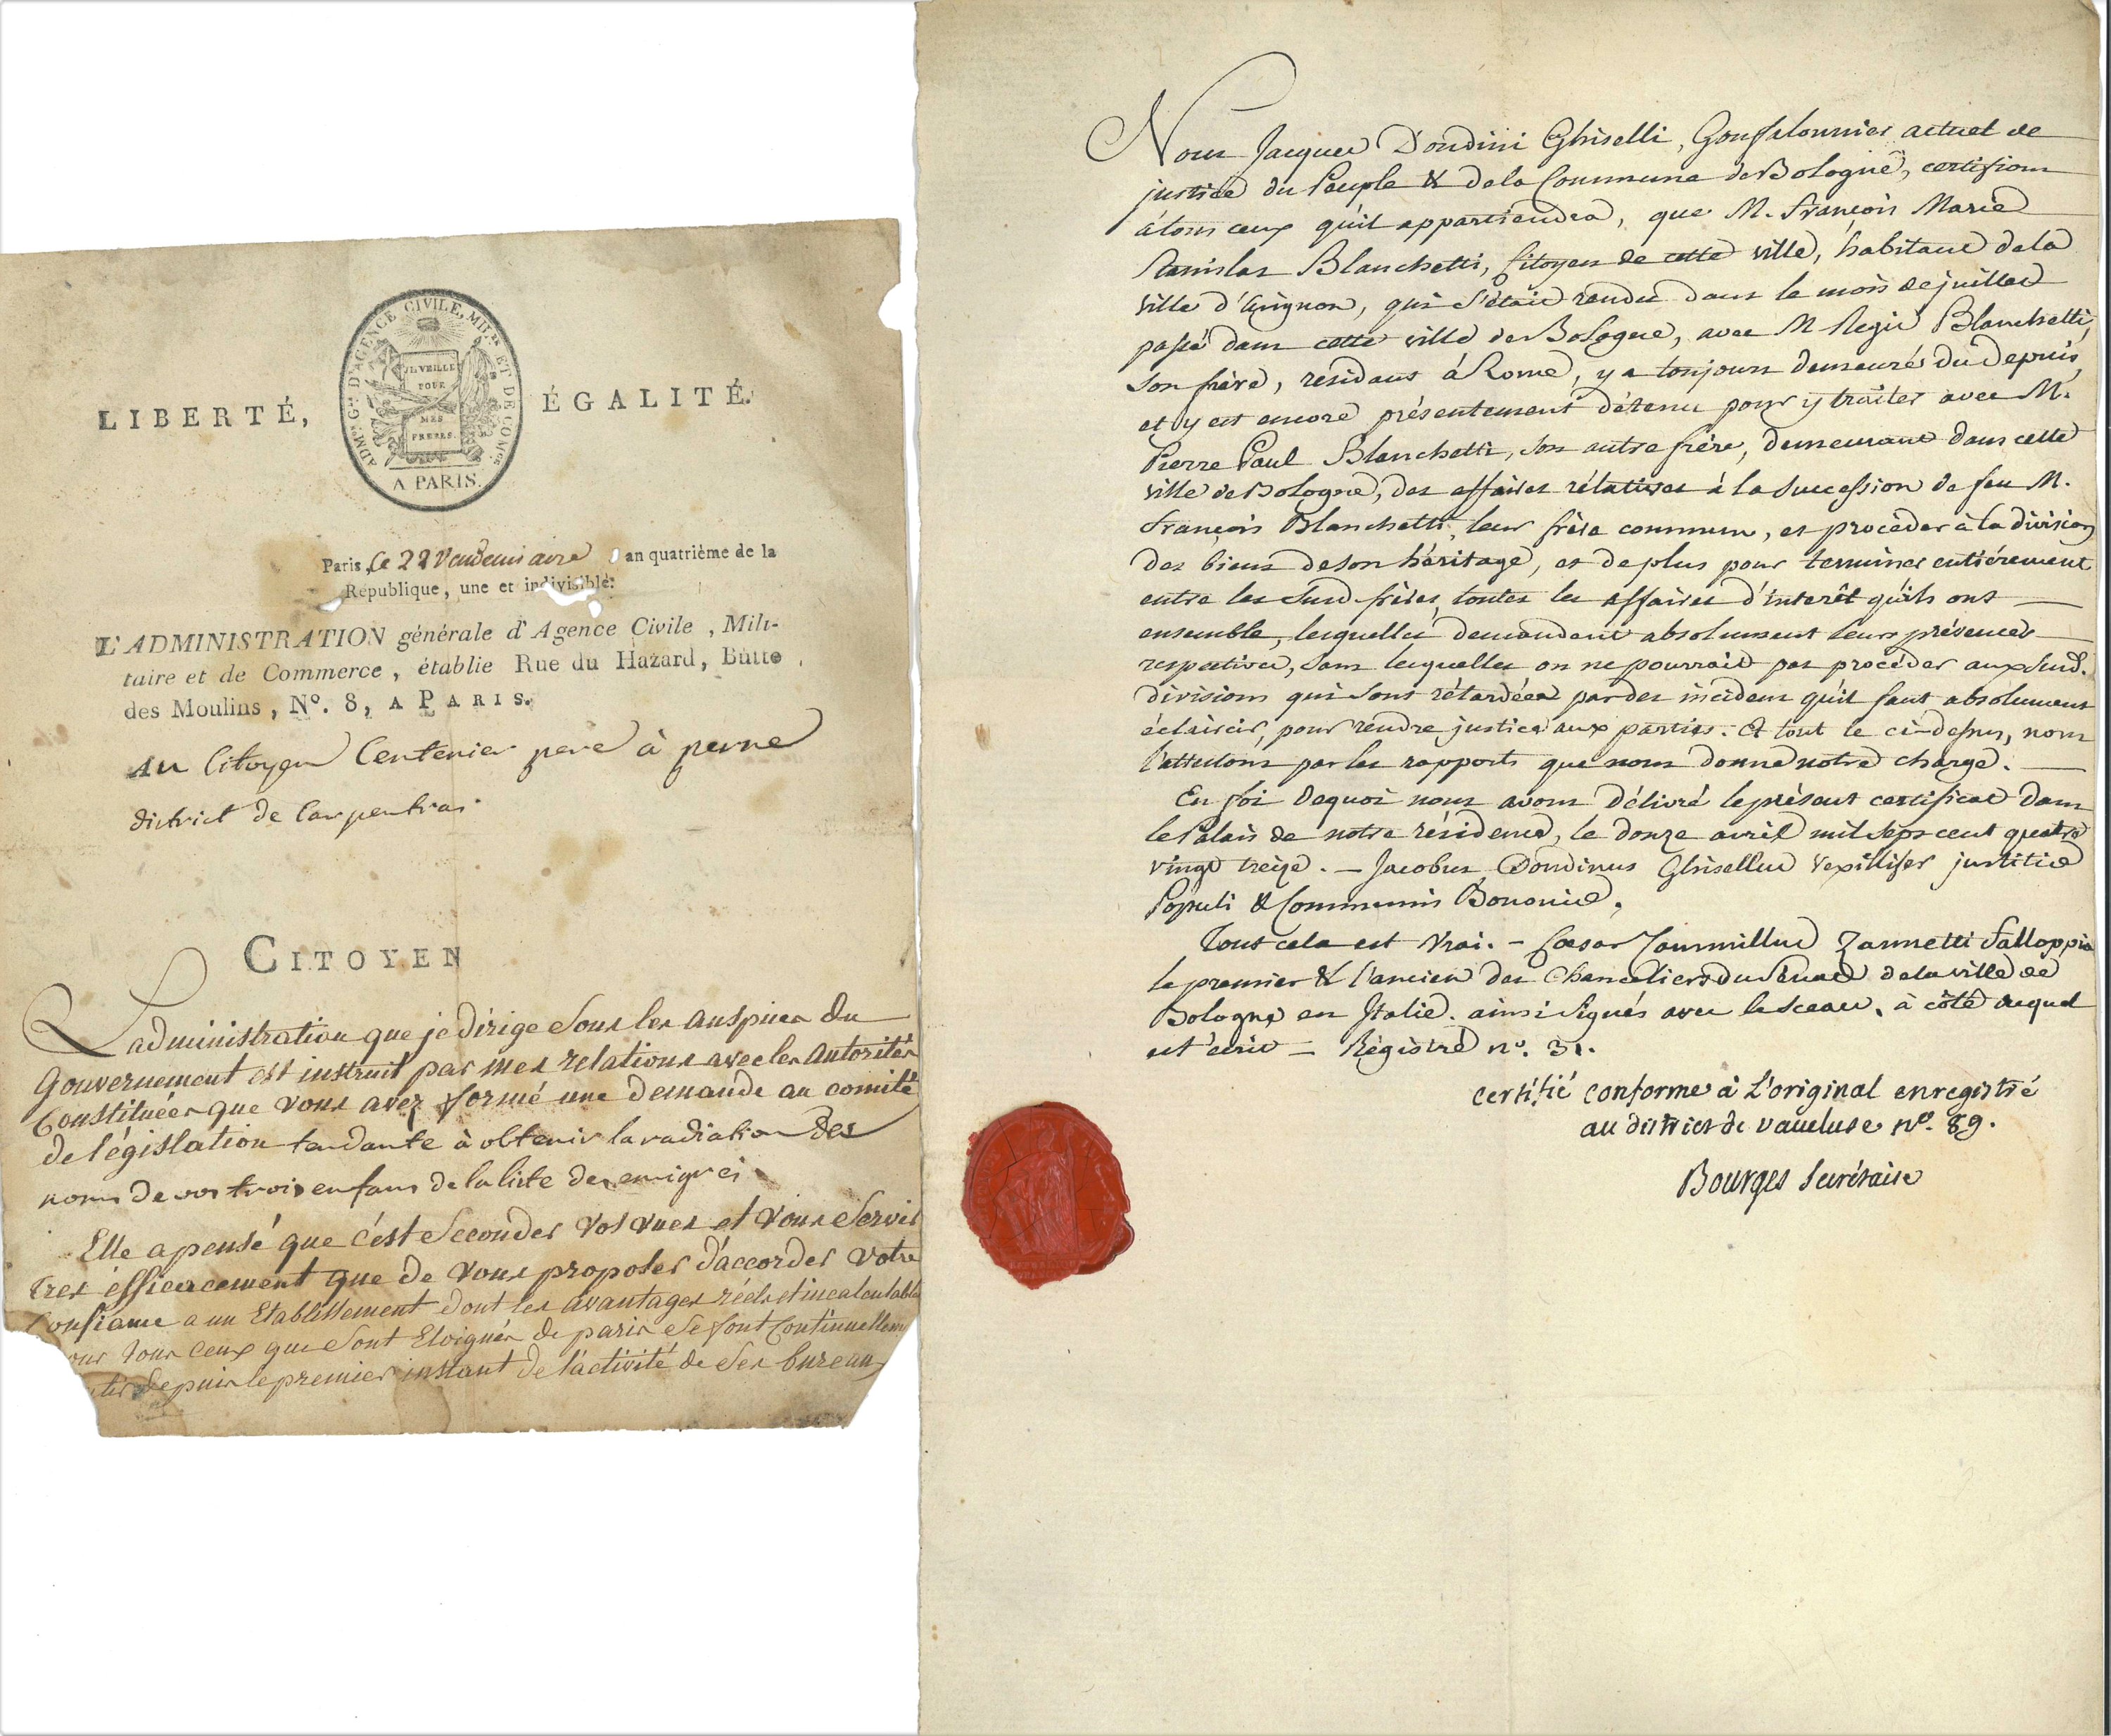 LIBERTÉ,
ADM.on G.le D'AGENCE CIVILE, MIL.re ET DE COM.ce
IL VEILLE
POUR
MES
FRERES.
A PARIS.
ÉGALITÉ.
Paris, le 22 Vendemiaire an quatrième de la
République, une et indivisible.
L'ADMINISTRATION générale d'Agence Civile, Mili-
taire et de Commerce, établie Rue du Hazard, Butte
des Moulins, N°. 8, A PARIS.
Au Citoyen Centenier pere à perne
district de Carpentras.
CITOYEN
L'administration que je dirige Sous les auspices du
Gouvernement est instruit par mes relations avec les Autorités
Constituées que vous avez formé une demande au comité
de législation tendante à obtenir la radiation des
noms de vos trois enfans de la liste des emigrés
Elle a pensé que c'est Seconder vos vues et vous Servir
tres efficacement que de vous proposer d'accorder votre
Confiance a un Etablissement dont les avantages réels et incalculables
pour tous ceux que Sont Eloignés de paris Se font Continuellem
depuis le premier instant de l'activité de Ses bureaux
Nous Jacques Dondini Ghiselli, Gonfalonnier actuel de
justice du Peuple & de la Commune de Bologne, certifions
à tous ceux qu'il appartiendra, que M. François Marie
Stanislas Blanchetti, Citoyen de cette ville, habitant de la
ville d'Avignon, qui s'étoit rendu dans le mois de juillet
passé dans cette ville de Bologne, avec M Regis Blanchetti,
son frère, résidant à Rome, y a toujours demeuré du depuis,
et y est encore présentement détenu pour y traiter avec M.
Pierre Paul Blanchetti, son autre frère, demeurant dans cette
ville de Bologne, des affaires rélatives à la succession de feu M.
François Blanchetti, leur frère commun, et procéder à la division
des biens de son héritage, et de plus pour terminer entiérement
entre les susd. frères, toutes les affaires d'interêt qu'ils ont
ensemble, lesquelles demandent absolument leurs présences
respectives, sans lesquelles on ne pourroit pas procéder aux susd.
divisions qui sont rétardées par des incidens qu'il faut absolument
éclaircir, pour rendre justice aux parties. Et tout le ci-dessus, nous
l'attestons par les rapports que nous donne notre charge.
En foi dequoi nous avons délivré le présent certificat dans
le Palais de notre résidence, le douze avril mil sept cent quatre
vingt treize. — Jacobus Dondinus Ghisellus vexillifer justitiæ
Populi & Communis Bononiæ.
Tout cela est vrai. — Cæsar Zannetti Falloppia
le premier & l'ancien des Chanceliers du Sénat de la ville de
Bologne en Italie. ainsi signés avec le sceau, à côté duquel
est écrit — Régistré n°. 31.
certifié conforme à L'original enregistré
au district de vaucluse n°. 89.
Bourges Secrétaire